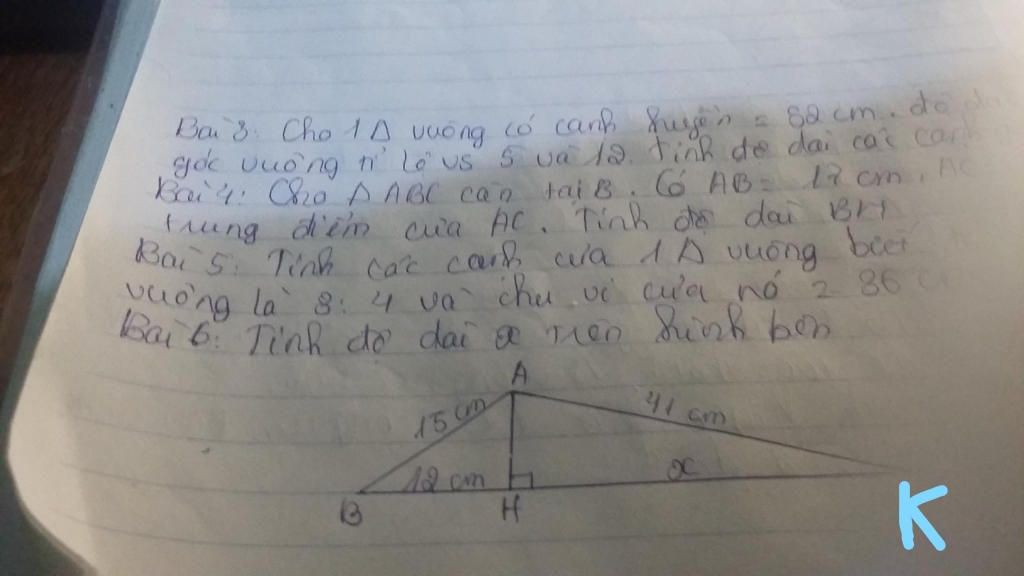 Bài 3: Cho 1 Δ vuông có cạnh huyền = 52 cm. độ dài
góc vuông tỉ lệ vs 5 và 12. Tính độ dài các cạnh
Bài 4: Cho Δ ABC cân tại B. Có AB = 17 cm, AC
trung điểm của AC. Tính độ dài BH
Bài 5: Tính các cạnh của 1 Δ vuông biết
vuông là 3:4 và chu vi của nó = 36
Bài 6: Tính độ dài x trên hình bên
A
15 cm
41 cm
12 cm
x
B
H
K